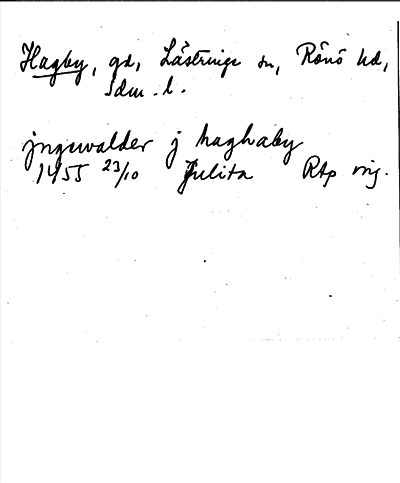 Hagby, gd, Lästringe sn, Rönö hd,
Sdm. l.
jngewalder j haghaby
1455 23/10 Julita RAp orig.